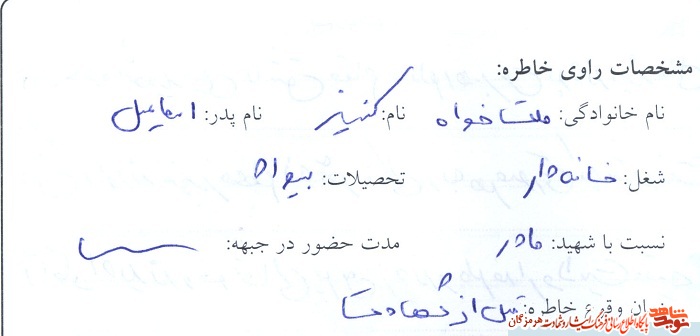 مشخصات راوی خاطره:
نام خانوادگی: ملتخواه نام: کنیز نام پدر: اسماعیل
شغل: خانه دار تحصیلات: بیسواد
نسبت با شهید: مادر مدت حضور در جبهه:
زمان وقوع خاطره: قبل از شهادت
نوید شاهد
پایگاه اطلاع رسانی فرهنگ ایثار و شهادت هرمزگان